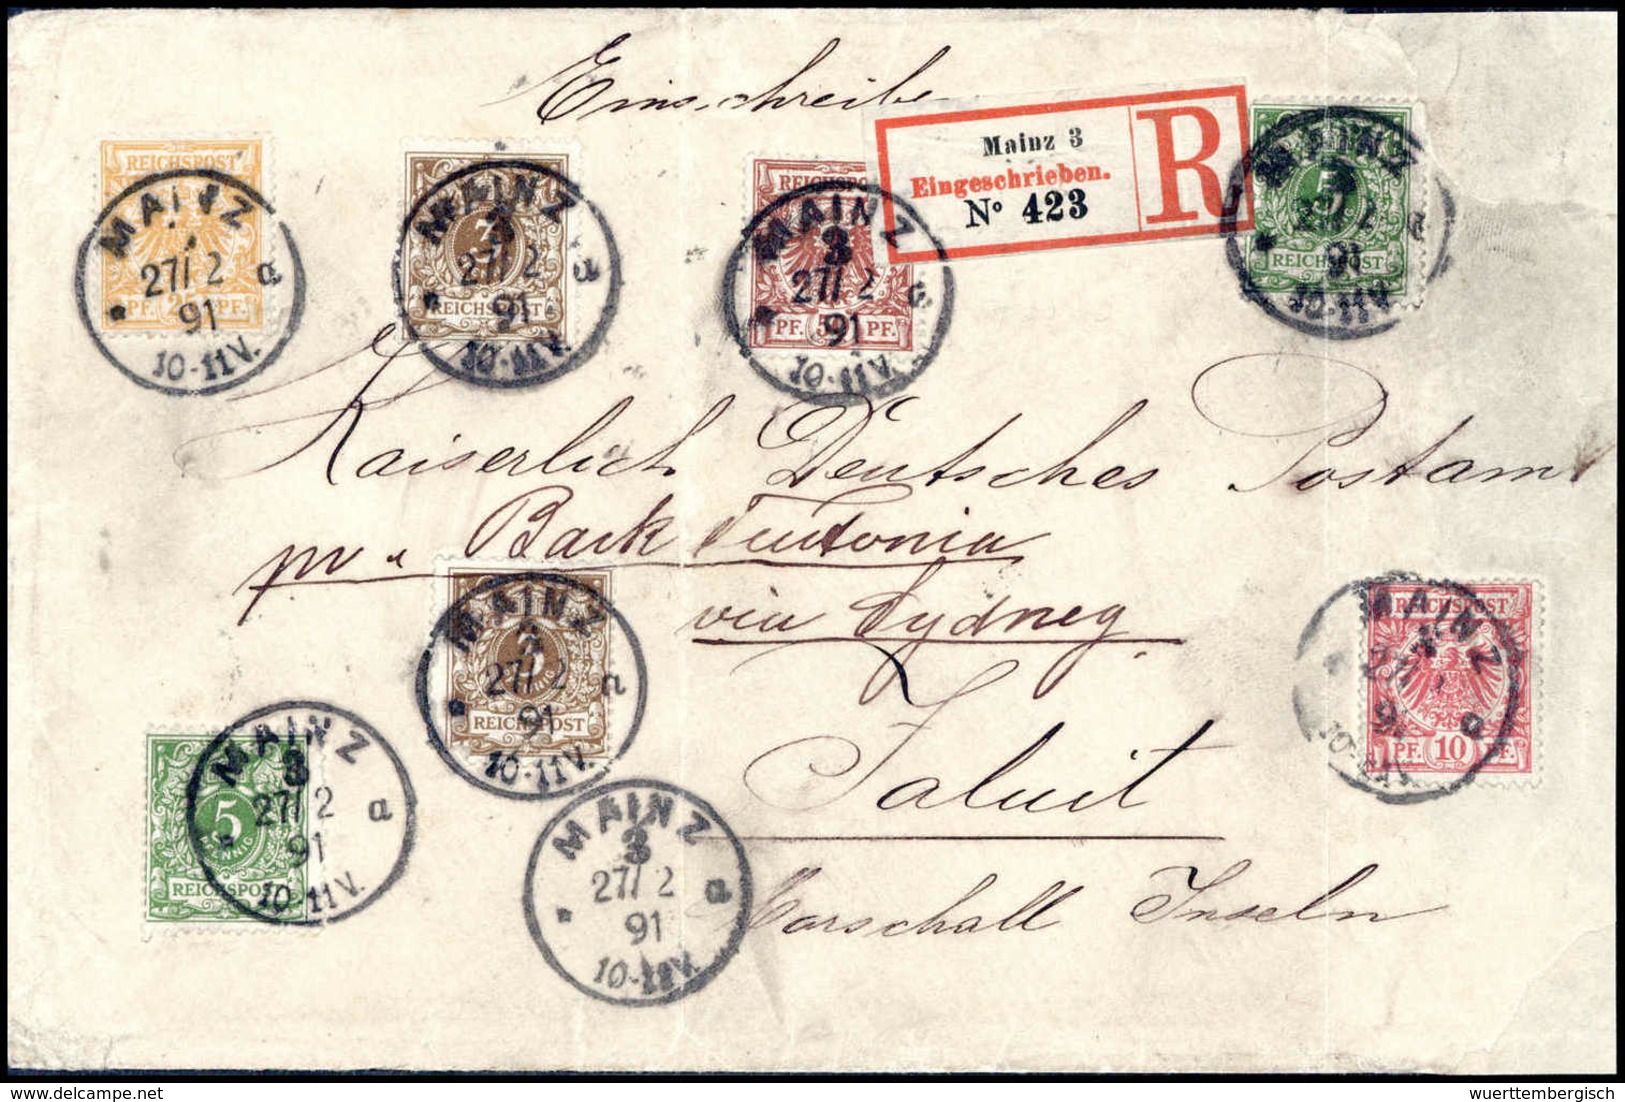 Einschreibe
Mainz 3
Eingeschrieben.
No 423
R
REICHSPOST
PF. 25 PF.
MAINZ
27/2
91
a
10-11V.
3
REICHSPOST
MAINZ
3
27/2
91
a
10-11V.
REICHSPOST
PF. 50 PF.
MAINZ
3
27/2
91
a
10-11V.
5
REICHSPOST
MAINZ
3
27/2
91
a
10-11V.
Kaiserlich Deutsches Postamt
pr. Bark Teutonia
via Sydney
Jaluit
Marschall Inseln
3
REICHSPOST
MAINZ
3
27/2
91
a
10-11V.
REICHSPOST
PF. 10 PF.
MAINZ
91
a
10-11V.
5
PFENNIG
REICHSPOST
MAINZ
3
27/2
91
a
10-11V.
MAINZ
3
27/2
91
a
10-11V.
www.delcampe.net
wuerttembergisch